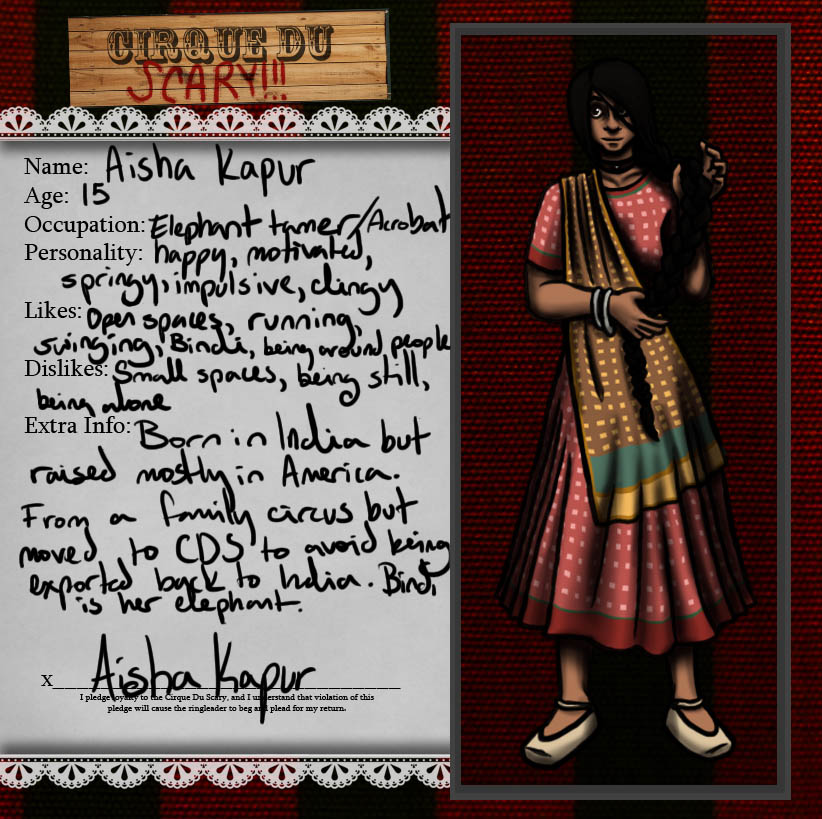 CIRQUE DU
SCARY!!!
Name: Aisha Kapur
Age: 15
Occupation: Elephant tamer/Acrobat
Personality: happy, motivated,
springy, impulsive, clingy
Likes: Open spaces, running,
swinging, Bindi, being around people
Dislikes: Small spaces, being still,
being alone
Extra Info: Born in India but
raised mostly in America.
From a family circus but
moved to CDS to avoid being
exported back to India. Bindi
is her elephant.
x Aisha Kapur
I pledge loyalty to the Cirque Du Scary, and I understand that violation of this
pledge will cause the ringleader to beg and plead for my return.